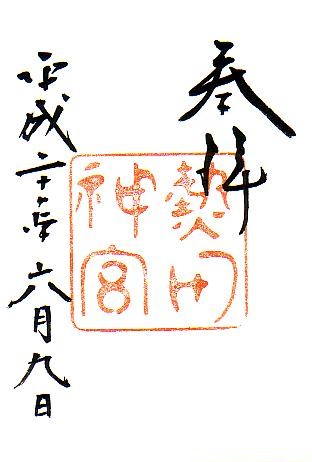 奉拝
熱田
神宮
平成二十年六月九日